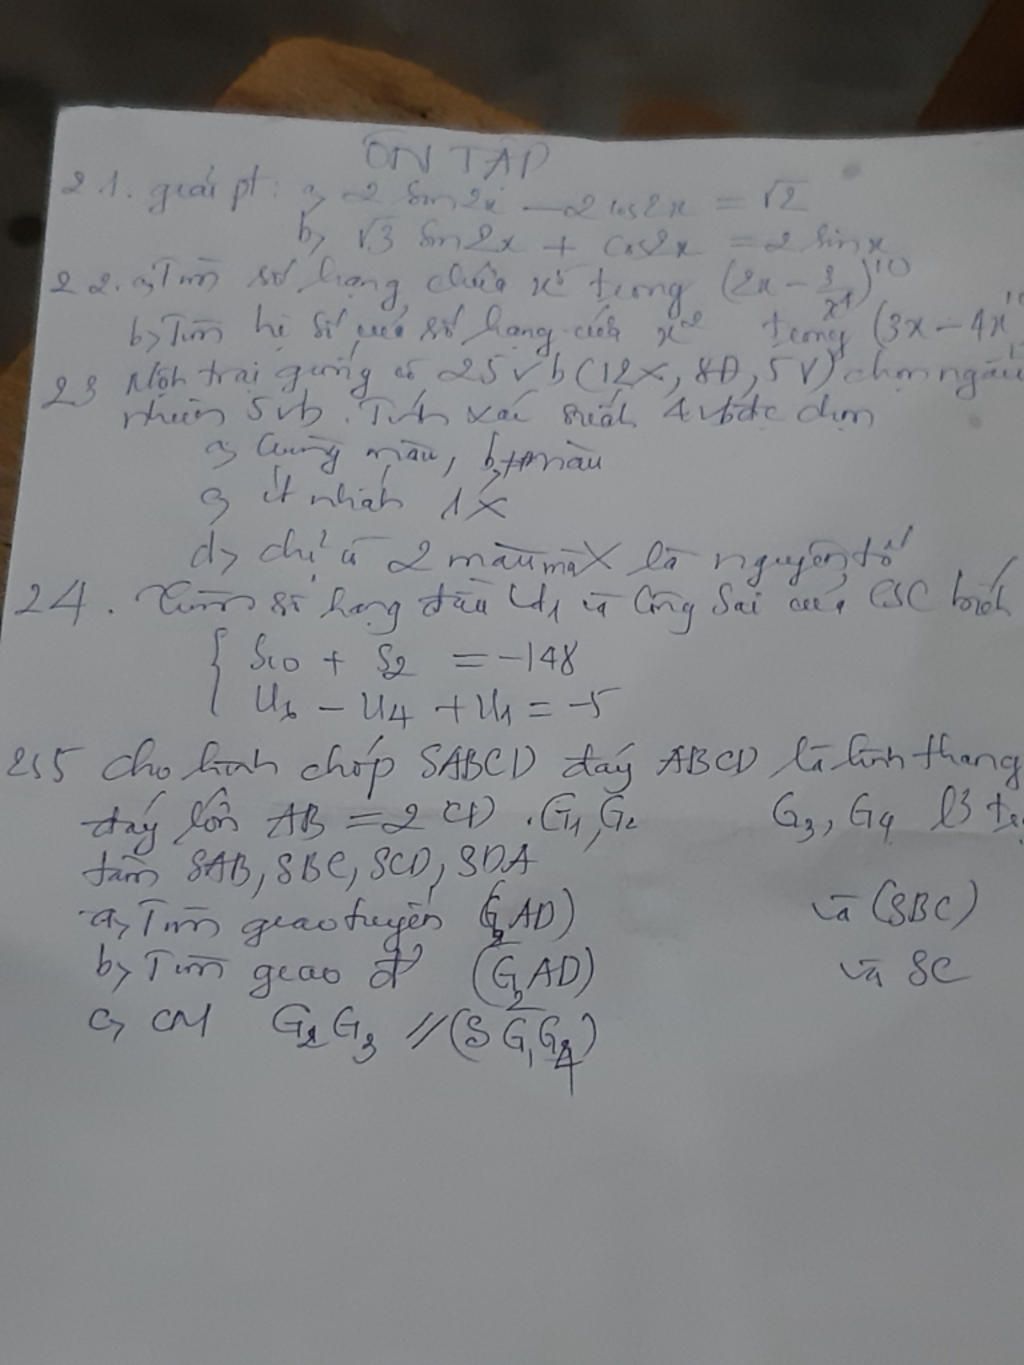 ÔN TẬP
21. giải pt: a, 2 sin2x - 2cos2x = √2
b, √3 sin2x + cos2x = 2 sinx
22. a, Tìm số hạng chứa x⁵ trong (2x - 3/x⁴)¹⁰
b, Tìm hệ số của số hạng của x² trong (3x - 4x
23 Một trại giống có 25 vb (12X, 8Đ, 5V) chọn ngẫu
nhiên 5vb. Tính xác suất 4 vb đc chọn
a, cùng màu, b, màu
c, ít nhất 1X
d, chỉ có 2 màu mà X là nguyên tố
24. Tìm số hạng đầu U₁ và Công Sai của CSC biết
S₁₀ + S₂ = -148
U₆ - U₄ + U₁ = -5
Cho hình chóp SABCD đáy ABCD là hình thang
đáy lớn AB = 2 CD . G₁, G₂ G₃, G₄ là
tâm SAB, SBC, SCD, SDA
a, Tìm giao tuyến (G₂AD) và (SBC)
b, Tìm giao đ² (G₂AD) và SC
c, CM G₂G₃ // (SG₁G₄)